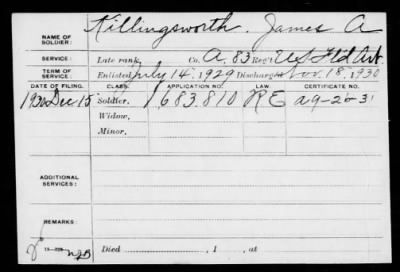 NAME OF SOLDIER: Killingsworth, James A
SERVICE: Late rank, Co. A, 83 Reg't US Fld Art.
TERM OF SERVICE: Enlisted July 14, 1929 Discharged Nov. 18, 1930
DATE OF FILING. CLASS. APPLICATION NO. LAW. CERTIFICATE NO.
1930 Dec 15 Soldier, 1683,810 RE a9-26-31
Widow,
Minor,
ADDITIONAL SERVICES:
REMARKS:
Died , 1 , at